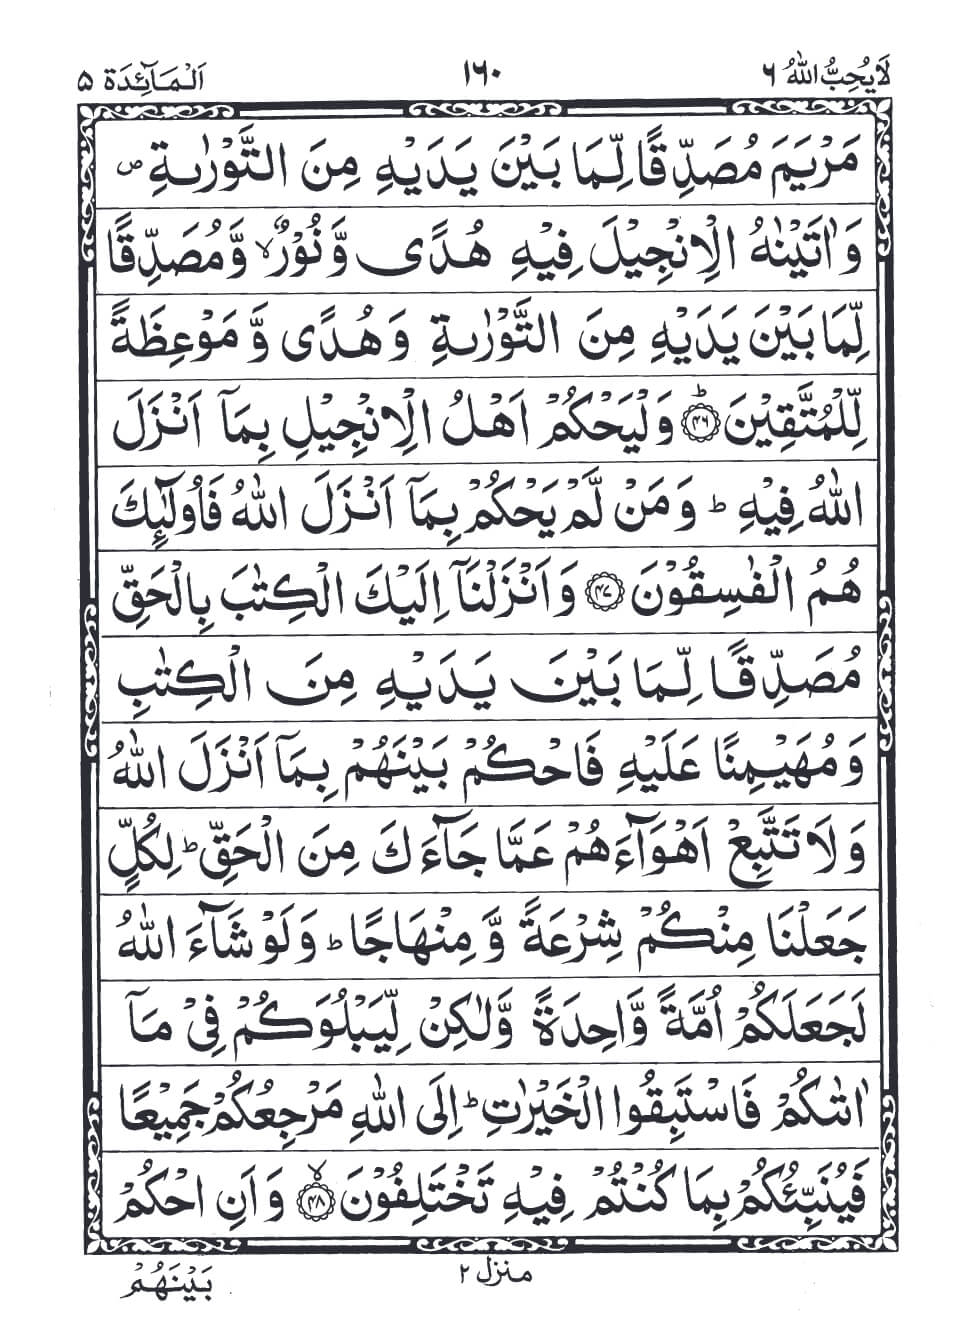 لَا يُحِبُّ اللّٰهُ ٦
١٦٠
اَلْمَآئِدَة ۵
مَرْيَمَ مُصَدِّقًا لِّمَا بَيْنَ يَدَيْهِ مِنَ التَّوْرٰىةِ ۪
وَاٰتَيْنٰهُ الْاِنْجِيْلَ فِيْهِ هُدًى وَّنُوْرٌ ۙ وَّمُصَدِّقًا
لِّمَا بَيْنَ يَدَيْهِ مِنَ التَّوْرٰىةِ وَهُدًى وَّمَوْعِظَةً
لِّلْمُتَّقِيْنَ ؕ﴿۴۶﴾ وَلْيَحْكُمْ اَهْلُ الْاِنْجِيْلِ بِمَآ اَنْزَلَ
اللّٰهُ فِيْهِ ؕ وَمَنْ لَّمْ يَحْكُمْ بِمَآ اَنْزَلَ اللّٰهُ فَاُولٰٓئِكَ
هُمُ الْفٰسِقُوْنَ ﴿۴۷﴾ وَاَنْزَلْنَآ اِلَيْكَ الْكِتٰبَ بِالْحَقِّ
مُصَدِّقًا لِّمَا بَيْنَ يَدَيْهِ مِنَ الْكِتٰبِ
وَمُهَيْمِنًا عَلَيْهِ فَاحْكُمْ بَيْنَهُمْ بِمَآ اَنْزَلَ اللّٰهُ
وَلَا تَتَّبِعْ اَهْوَآءَهُمْ عَمَّا جَآءَكَ مِنَ الْحَقِّ ؕ لِكُلٍّ
جَعَلْنَا مِنْكُمْ شِرْعَةً وَّمِنْهَاجًا ؕ وَلَوْ شَآءَ اللّٰهُ
لَجَعَلَكُمْ اُمَّةً وَّاحِدَةً وَّلٰكِنْ لِّيَبْلُوَكُمْ فِيْ مَآ
اٰتٰىكُمْ فَاسْتَبِقُوا الْخَيْرٰتِ ؕ اِلَى اللّٰهِ مَرْجِعُكُمْ جَمِيْعًا
فَيُنَبِّئُكُمْ بِمَا كُنْتُمْ فِيْهِ تَخْتَلِفُوْنَ ۙ﴿۴۸﴾ وَاَنِ احْكُمْ
منزل ٢
بَيْنَهُمْ